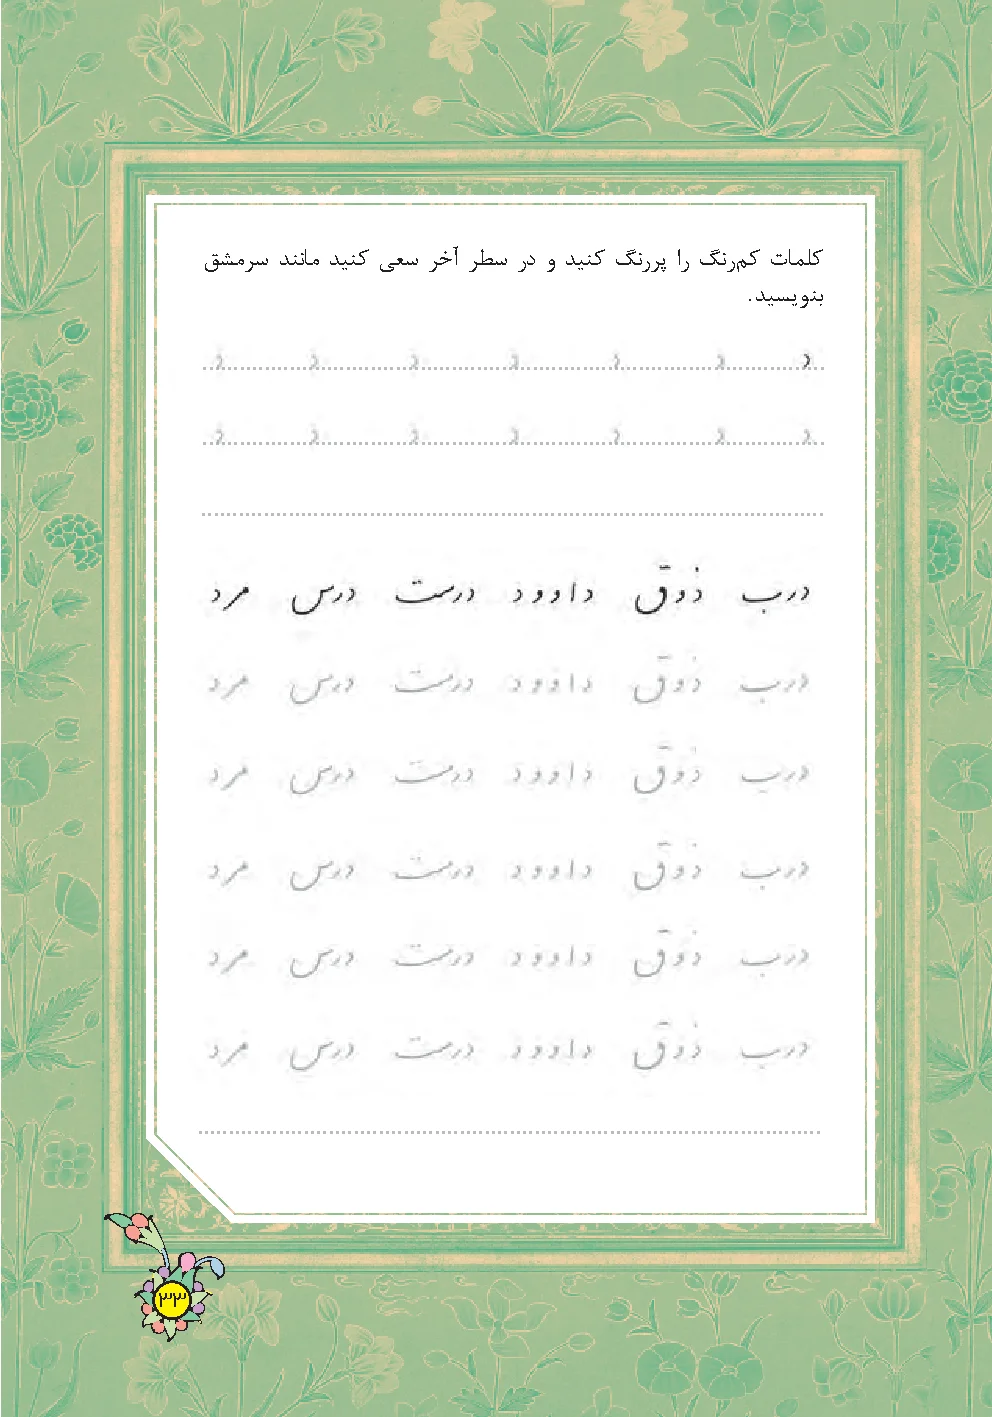 کلمات کم‌رنگ را پررنگ کنید و در سطر آخر سعی کنید مانند سرمشق
بنویسید.
د د د د د د د
د د د د د د د
درب ذوق داوود درست درس مرد
درب ذوق داوود درست درس مرد
درب ذوق داوود درست درس مرد
درب ذوق داوود درست درس مرد
درب ذوق داوود درست درس مرد
درب ذوق داوود درست درس مرد
۳۳